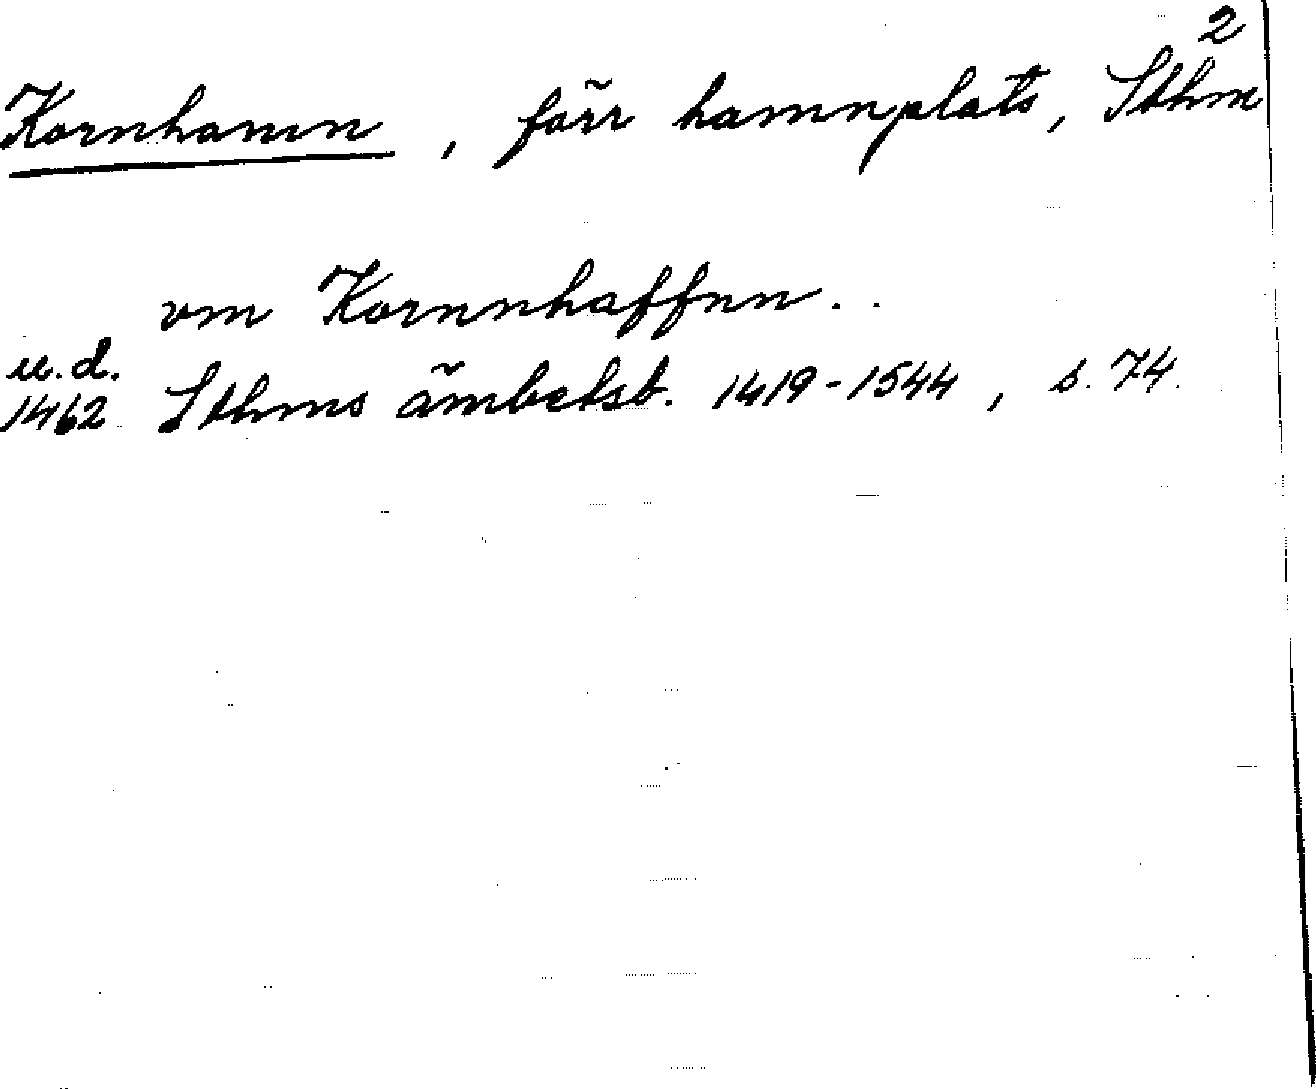 2
Kornhamn, förr hamnplats, Sthm
vm Kornnhaffnn..
u.d.
1462 Sthms ämbetsb. 1419-1544, s. 74.